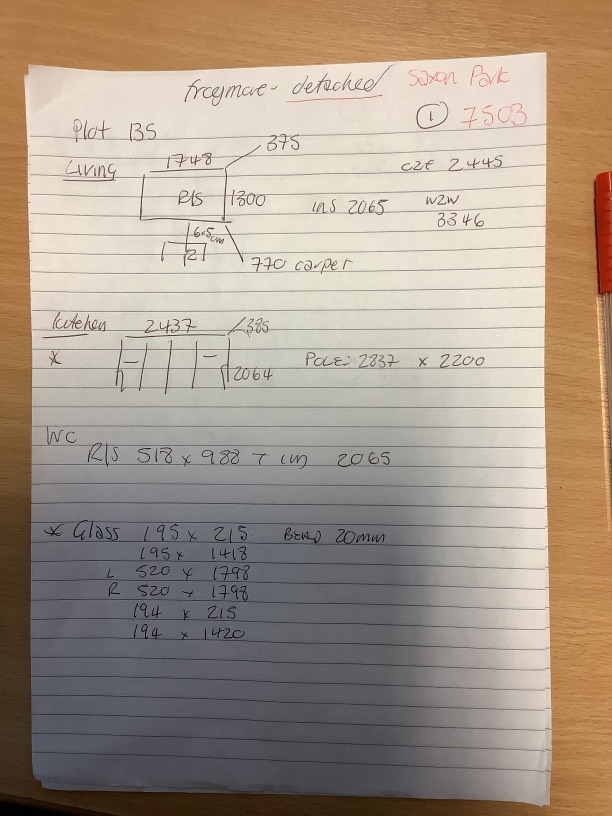 freymore - detached Saxon Park
① 7503
Plot 135
Living 1748 375 C2C 2445
R/S 1300 INS 2065 W2W
3346
6.5cm
2
770 carpet
Kitchen 2437 385
x 2064 POLE: 2837 x 2200
WC
R/S 518 x 988 2065
x Glass 195 x 215 BEAD 20mm
195 x 1418
L 520 x 1798
R 520 x 1798
194 x 215
194 x 1420